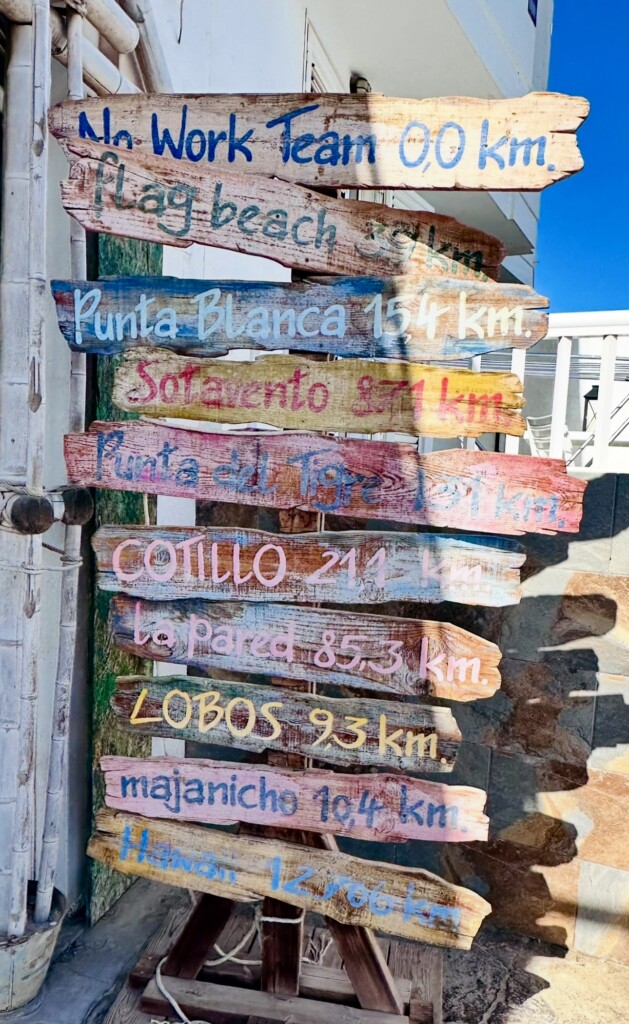 No Work Team 0,0 km.
flag beach 3,9 km.
Punta Blanca 15,4 km.
Sotavento 87,1 km.
Punta del Tigre 1,91 km.
COTILLO 21,1 km
la pared 85,3 km.
LOBOS 9,3 km.
majanicho 10,4 km.
Hawaii km